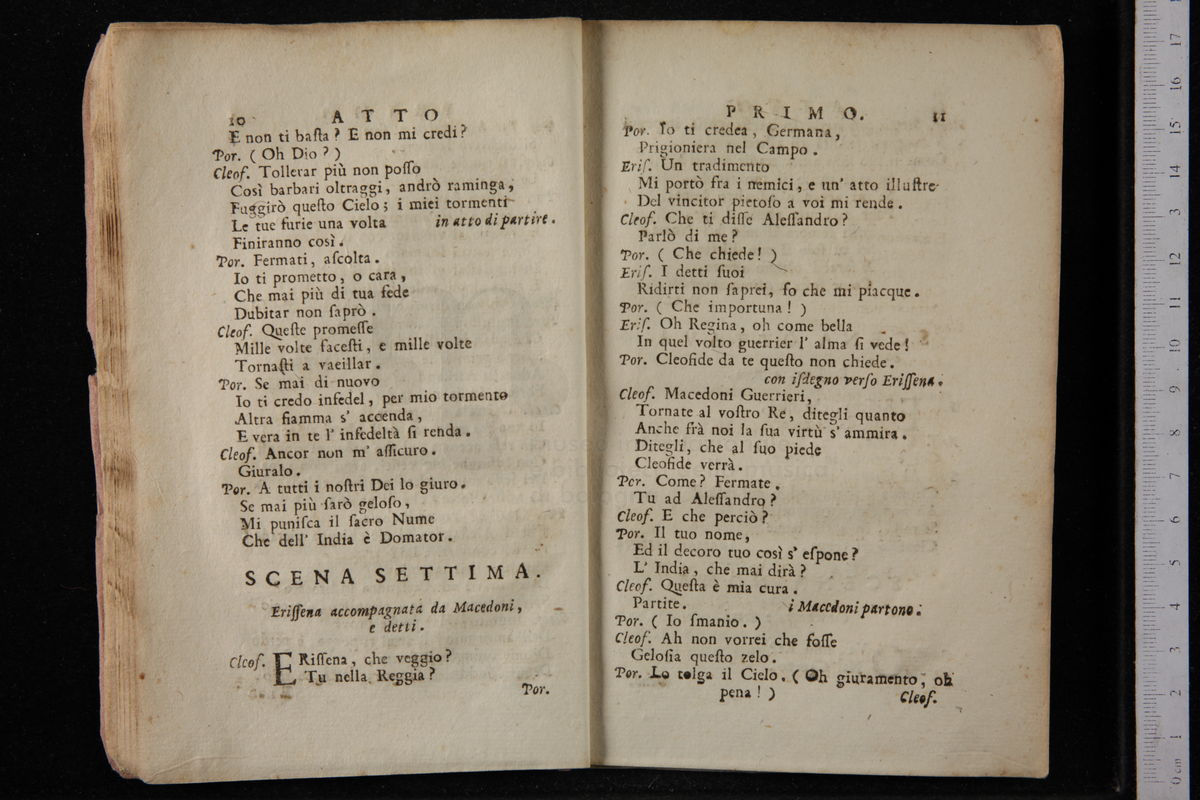 10 ATTO
E non ti baſta? E non mi credi?
Por. ( Oh Dio ? )
Cleof. Tollerar più non poſſo
Così barbari oltraggi, andrò raminga,
Fuggirò queſto Cielo; i miei tormenti
Le tue furie una volta in atto di partire.
Finiranno così.
Por. Fermati, aſcolta.
Io ti prometto, o cara,
Che mai più di tua fede
Dubitar non ſaprò.
Cleof. Queſte promeſſe
Mille volte faceſti, e mille volte
Tornaſti a vaeillar.
Por. Se mai di nuovo
Io ti credo infedel, per mio tormento
Altra fiamma s' accenda,
E vera in te l' infedeltà ſi renda.
Cleof. Ancor non m' aſſicuro.
Giuralo.
Por. A tutti i noſtri Dei lo giuro.
Se mai più ſarò geloſo,
Mi puniſca il ſacro Nume
Che dell' India è Domator.
SCENA SETTIMA.
Eriſſena accompagnata da Macedoni,
e detti.
Cleof. ERiſſena, che veggio?
Tu nella Reggia?
Por.
PRIMO. 11
Por. Io ti credea, Germana,
Prigioniera nel Campo.
Eriſ. Un tradimento
Mi portò fra i nemici, e un' atto illuſtre
Del vincitor pietoſo a voi mi rende.
Cleof. Che ti diſſe Aleſſandro?
Parlò di me?
Por. ( Che chiede! )
Eriſ. I detti ſuoi
Ridirti non ſaprei, ſo che mi piacque.
Por. ( Che importuna! )
Eriſ. Oh Regina, oh come bella
In quel volto guerrier l' alma ſi vede!
Por. Cleofide da te queſto non chiede.
con iſdegno verſo Eriſſena.
Cleof. Macedoni Guerrieri,
Tornate al voſtro Re, ditegli quanto
Anche frà noi la ſua virtù s' ammira.
Ditegli, che al ſuo piede
Cleofide verrà.
Por. Come? Fermate.
Tu ad Aleſſandro?
Cleof. E che perciò?
Por. Il tuo nome,
Ed il decoro tuo così s' eſpone?
L' India, che mai dirà?
Cleof. Queſta è mia cura.
Partite. i Macedoni partono.
Por. ( Io ſmanio. )
Cleof. Ah non vorrei che foſſe
Geloſia queſto zelo.
Por. Lo tolga il Cielo. ( Oh giuramento, oh
pena! )
Cleof.